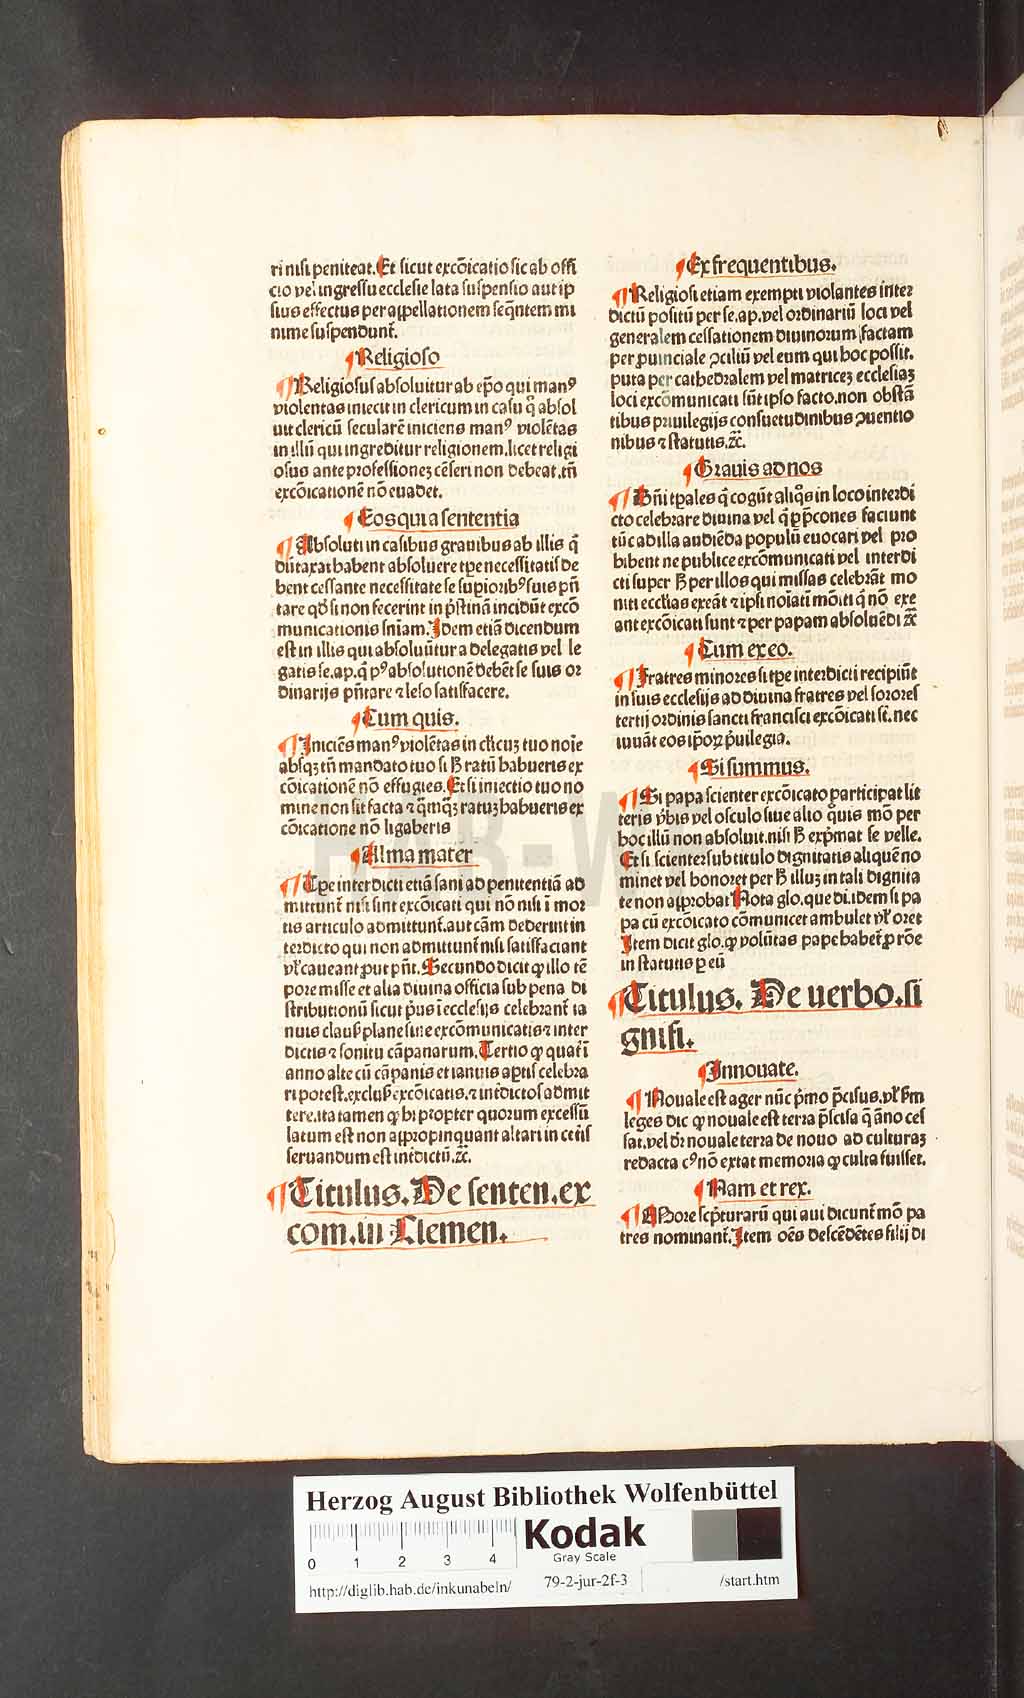 ri nisi peniteat. Et sicut excōicatio sic ab offi
cio vel ingressu ecclesie lata suspensio aut ip
sius effectus per appellationem seq̄ntem mi
nime suspendunt᷑.
¶ Religioso
¶ Religiosus absoluitur ab ep̄o qui manꝰ
violentas iniecit in clericum in casu q̊ absol
uit clericū secularē iniciens manꝰ violētas
in illū qui ingreditur religionem. licet religi
osus ante professionez cēseri non debeat. tn̄
excōicationē nō euadet.
¶ Eos qui a sententia
¶ Absoluti in casibus grauibus ab illis q̄
dūtaxat habent absoluere tp̄e necessitatis de
bent cessante necessitate se supioribꝰ suis pn̄
tare qđ si non fecerint in p̄stinā incidūt excō
municationis sn̄iam. Idem etiā dicendum
est in illis qui absoluūtur a delegatis vel le
gatis se. ap. q̄ pꝰ absolutionē debēt se suis or
dinarijs pn̄tare ⁊ leso satisfacere.
¶ Cum quis.
¶ Iniciēs manꝰ violētas in cl̄icuz tuo noīe
absqꝫ tn̄ mandato tuo si ħ ratū habueris ex
cōicationē nō effugies. Et si iniectio tuo no
mine non sit facta ⁊ q̄mqꝫ ratuz habueris ex
cōicatione nō ligaberis
¶ Alma mater
¶ Tp̄e interdicti etiā sani ad penitentiā ad
mittunt᷑ nisi sint excōicati qui nō nisi ī mor
tis articulo admittunt᷑. aut cām dederunt in
terdicto qui non admittunt᷑ nisi satisfaciant
vl̓ caueant ꝓut pn̄t. Secundo dicit ꝙ illo tē
pore misse et alia diuina officia sub pena di
stributionū sicut p̓us ī ecclesijs celebrant᷑ ia
nuis clausꝭ plane siue excōmunicatis ⁊ inter
dictis ⁊ sonitu cāpanarum. Tertio ꝙ quat᷑ ī
anno alte cū cāpanis et ianuis aꝑtis celebra
ri potest. exclusꝭ excōicatis. ⁊ int̓dictos admit
tere. ita tamen ꝙ hi propter quorum excessū
latum est non appropinquant altari in cet̓is
seruandum est int̓dictū. ⁊c̄.
¶ Titulus. De senten. ex
com. in Clemen.
¶ Ex frequentibus.
¶ Religiosi etiam exempti violantes inter
dictū positū per se. ap. vel ordinariū loci vel
generalem cessationem diuinorum factam
per ꝓuinciale ↄciliū vel eum qui hoc possit.
puta per cathedralem vel matricez ecclesiaz
loci excōmunicati sūt ipso facto. non obstā
tibus priuilegijs consuetudinibus ↄuentio
nibus ⁊ statutis. ⁊c̄.
¶ Grauis ad nos
¶ Dn̄i tp̄ales q̄ cogūt aliq̊s in loco interdi
cto celebrare diuina vel q̄ ꝑ p̄cones faciunt
tūc ad illa audiēda populū euocari vel pro
hibent ne publice excōmunicati vel interdi
cti super ħ per illos qui missas celebrāt mo
niti eccl̄ias exeāt ⁊ ipsi noīatī mōiti q̄ nō exe
ant excōicati sunt ⁊ per papam absoluēdi ⁊c̄
¶ Cum ex eo.
¶ Fratres minores si tp̄e interdicti recipiūt
in suis ecclesijs ad diuina fratres vel sorores
tertij ordinis sancti francisci excōicati st̄. nec
iuuāt eos ip̄oꝝ p̓uilegia.
¶ Si summus.
¶ Si papa scienter excōicato participat lit
teris v̓bis vel osculo siue alio q̊uis mō per
hoc illū non absoluit. nisi ħ exp̓mat se velle.
Et si scienter sub titulo dignitatis aliquē no
minet vel honoret per ħ illuz in tali dignita
te non approbat Nota glo. que di. idem si pa
pa cū excōicato cōmunicet ambulet vl̓ oret
Item dicit glo. ꝙ volūtas pape habet᷑ ꝓ rōe
in statutis ꝑ eū
¶ Titulus. De uerbo. si
gnifi.
¶ Innouate.
¶ Nouale est ager nūc p̓mo p̄cisus. vl̓ sm̄
leges dic ꝙ nouale est terra p̄scisa q̄ āno ces
sat. vel dr̄ nouale terra de nouo ad culturaz
redacta cꝰ nō extat memoria ꝙ culta fuisset.
¶ Nam et rex.
¶ More scp̓turarū qui aui dicunt᷑ mō pa
tres nominant᷑. Item oēs descēdētes filij di
HAB-W
Herzog August Bibliothek Wolfenbüttel
0 1 2 3 4
Kodak
Gray Scale
http://diglib.hab.de/inkunabeln/ 79-2-jur-2f-3 /start.htm